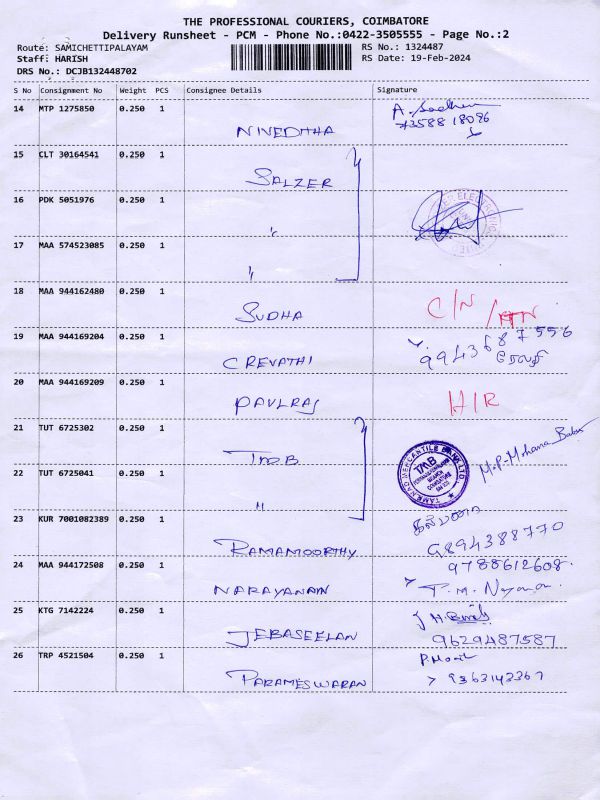 THE PROFESSIONAL COURIERS, COIMBATORE
Delivery Runsheet - PCM - Phone No.:0422-3505555 - Page No.:2
Route: SAMICHETTIPALAYAM RS No.: 1324487
Staff: HARISH RS Date: 19-Feb-2024
DRS No.: DCJB132448702
S No Consignment No Weight PCS Consignee Details Signature
14 MTP 1275850 0.250 1 NIVEDITHA
15 CLT 30164541 0.250 1 SALZER
16 PDK 5051976 0.250 1 "
17 MAA 574523085 0.250 1 "
18 MAA 944162480 0.250 1 SUDHA C/N
19 MAA 944169204 0.250 1 C REVATHI 9943687556
ரேவதி
20 MAA 944169209 0.250 1 PAULRAJ H/R
21 TUT 6725302 0.250 1 TMB TAMILNAD MERCANTILE BANK LTD. TMB M.P-Mohana Babu
22 TUT 6725041 0.250 1 "
23 KUR 7001082389 0.250 1 RAMAMOORTHY 9894388770
24 MAA 944172508 0.250 1 NARAYANAN 9788612608
25 KTG 7142224 0.250 1 JEBASEELAN 9629487587
26 TRP 4521504 0.250 1 PARAMESWARAN 9363142367